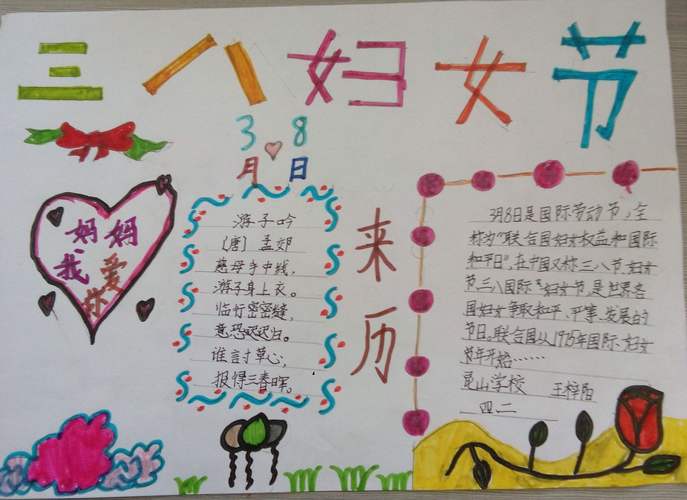 三八妇女节
3月8日
妈妈
我爱你
游子吟
(唐)孟郊
慈母手中线,
游子身上衣。
临行密密缝,
意恐迟迟归。
谁言寸草心,
报得三春晖。
来历
3月8日是国际劳动节,全
称为“联合国妇女权益和国际
和平日”,在中国又称三八节、妇女
节、三八国际妇女节,是世界各
国妇女争取和平、平等、发展的
节日。联合国从1975年国际妇女
年开始……
昆山学校 王梓阳
四二